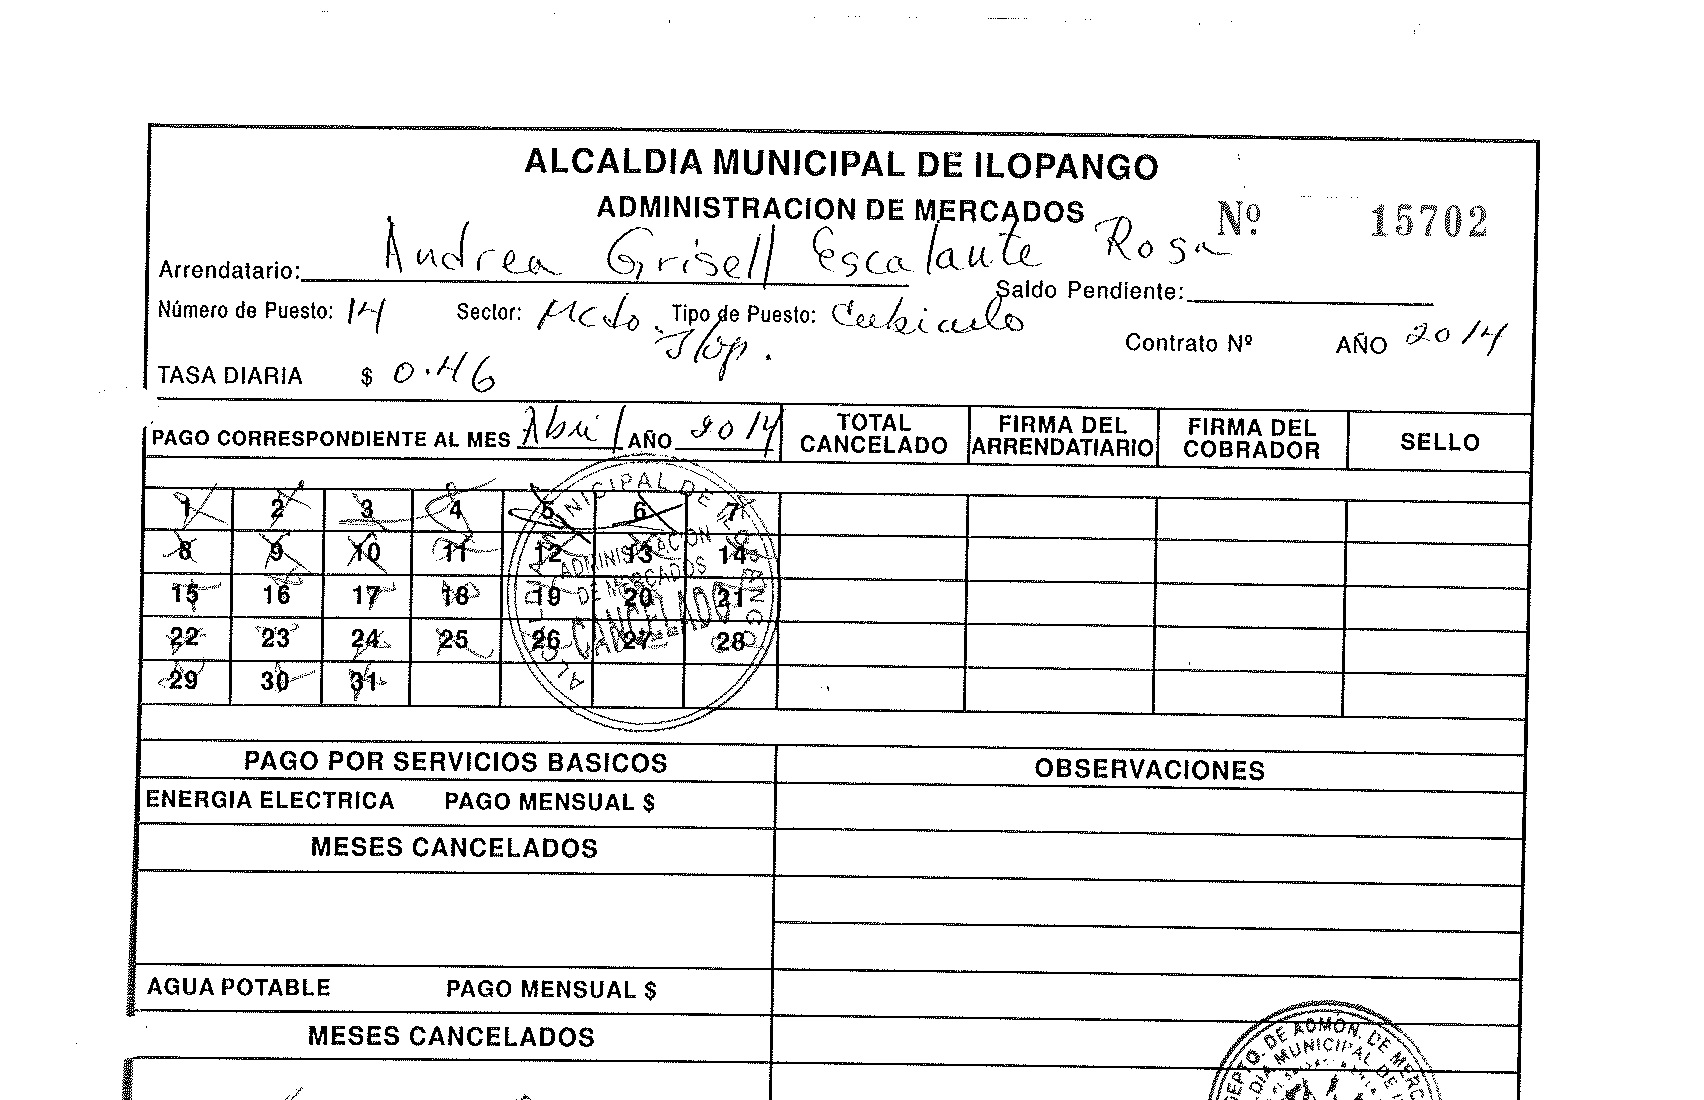 ALCALDIA MUNICIPAL DE ILOPANGO
ADMINISTRACION DE MERCADOS
Nº 15702
Arrendatario: Andrea Grisell Escalante Rosa
Saldo Pendiente:
Número de Puesto: 14 Sector: Mcdo. Ilop. Tipo de Puesto: Cubiculo
Contrato Nº AÑO 2014
TASA DIARIA $ 0.46
PAGO CORRESPONDIENTE AL MES Abril AÑO 2014 TOTAL CANCELADO FIRMA DEL ARRENDATIARIO FIRMA DEL COBRADOR SELLO
1 2 3 4 5 6 7
8 9 10 11 12 13 14
15 16 17 18 19 20 21
22 23 24 25 26 27 28
29 30 31
MUNICIPAL DE ILOPANGO
ADMINISTRACION
DE MERCADOS
CANCELADO
PAGO POR SERVICIOS BASICOS OBSERVACIONES
ENERGIA ELECTRICA PAGO MENSUAL $
MESES CANCELADOS
AGUA POTABLE PAGO MENSUAL $
MESES CANCELADOS
DEPTO. DE ADMÓN. DE MERC
DIA MUNICIPAL DE